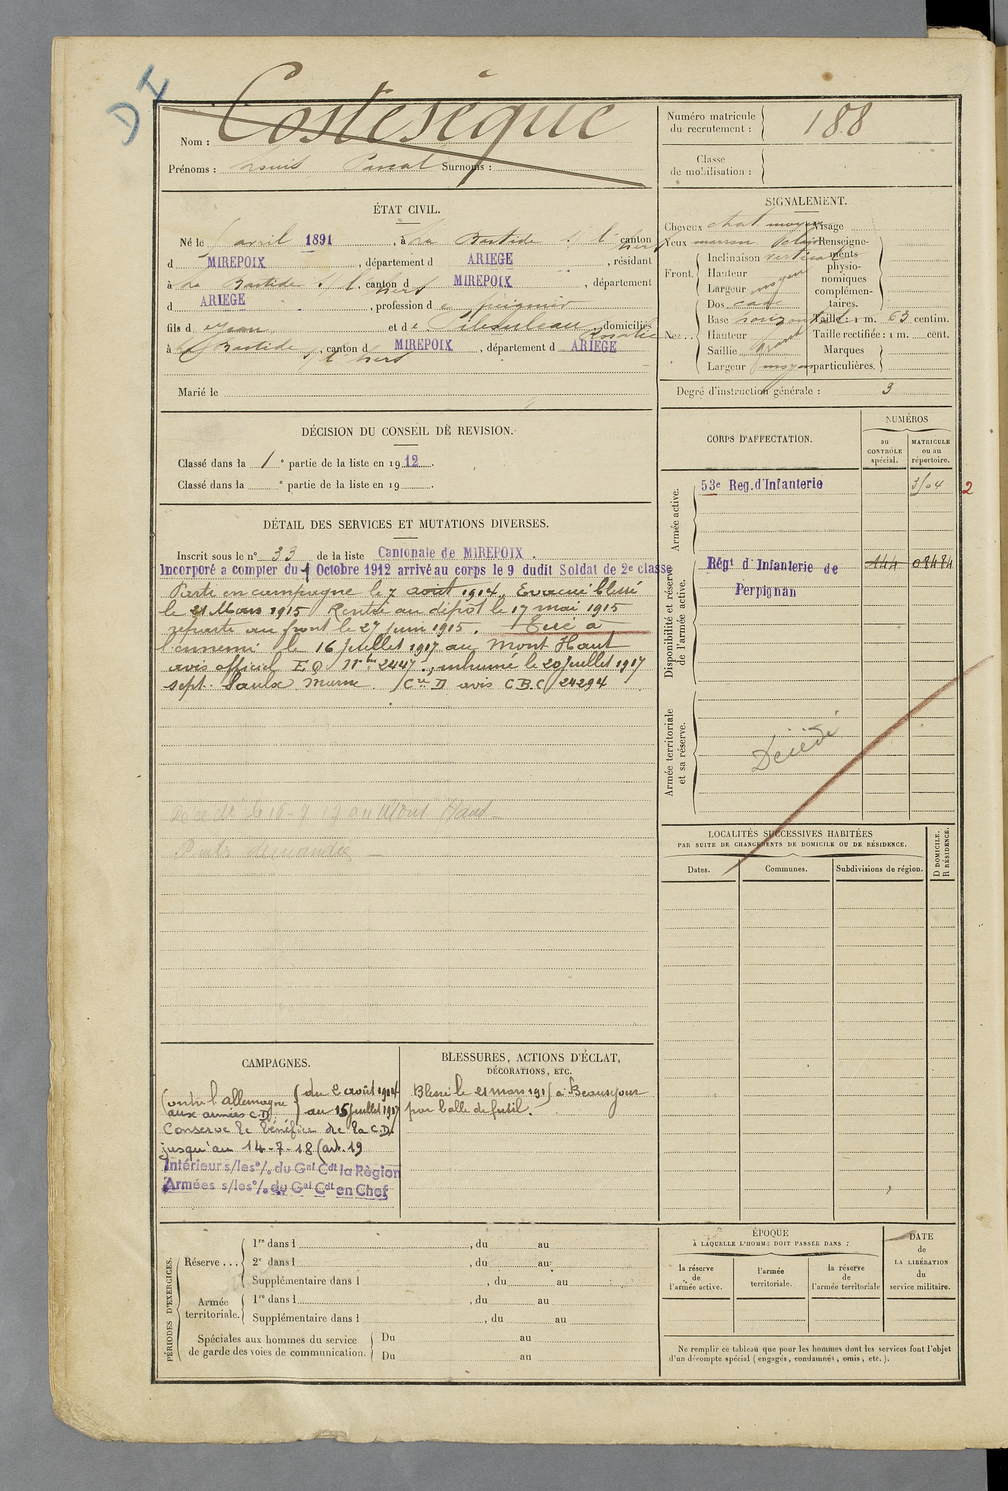 DI
Costesèque
Nom :
Prénoms : Louis Pascal Surnoms :
Numéro matricule
du recrutement : 188
Classe
de mobilisation :
ÉTAT CIVIL.
Né le avril 1891, à La Bastide s/ l' hers canton
d MIREPOIX, département d ARIEGE, résidant
à La Bastide s/ l' hers, canton d MIREPOIX, département
d ARIEGE, profession d e peignier
fils d e Jean et d e Rosalie domiciliés
à La Bastide s/ l' hers, canton d MIREPOIX, département d ARIEGE
Marié le
SIGNALEMENT.
Cheveux chat. moyen
Yeux marron
Front. Inclinaison vertical
Hauteur
Largeur moyen
Nez.. Dos cave
Base horizontal
Hauteur
Saillie
Largeur moyen
Visage
Renseigne-
ments
physio-
nomiques
complémen-
taires.
Taille : 1 m. 63 centim.
Taille rectifiée : 1 m. cent.
Marques
particulières.
Degré d'instruction générale : 3
DÉCISION DU CONSEIL DE REVISION.
Classé dans la 1e partie de la liste en 1912.
Classé dans la e partie de la liste en 19 .
CORPS D'AFFECTATION.
NUMÉROS
au
CONTRÔLE
spécial.
MATRICULE
ou au
répertoire.
Armée active.
53e Reg. d'Infanterie 3704 2
Disponibilité et réserve
de l'armée active.
Régt d'Infanterie de 144 08484
Perpignan
Armée territoriale
et sa réserve.
Décédé
DÉTAIL DES SERVICES ET MUTATIONS DIVERSES.
Inscrit sous le n° 33 de la liste Cantonale de MIREPOIX.
Incorporé a compter du 1 Octobre 1912 arrivé au corps le 9 dudit Soldat de 2e classe
Parti en campagne le 7 août 1914. Evacué blessé
le 21 Mars 1915 Rentré au dépôt le 17 mai 1915
reparti au front le 27 juin 1915. Tué à
l'ennemi le 16 juillet 1917 au Mont Haut
avis officiel E.O. Nro 2447., inhumé le 20 juillet 1917
sept. Saulx Marne. avis C.B.C. 24294
Décédé le 16-7-17 au Mont Haut
demandée
LOCALITÉS SUCCESSIVES HABITÉES
PAR SUITE DE CHANGEMENTS DE DOMICILE OU DE RÉSIDENCE.
Dates.
Communes.
Subdivisions de région.
D DOMICILE.
R RÉSIDENCE.
CAMPAGNES.
Contre l'allemagne du 2 août 1914
aux armées C.D. au 15 juillet 1917
Conserve le bénéfice de la C.D.
jusqu'au 14-7-18 (art. 19
Intérieur s/les % du Gal Cdt la Région
Armées s/les % du Gal Cdt en Chef
BLESSURES, ACTIONS D'ÉCLAT,
DÉCORATIONS, ETC.
Blessé le 21 mars 1915 à Beausejour
par balle de fusil.
PÉRIODES D'EXERCICES.
Réserve... 1re dans l , du au
2e dans l , du au
Supplémentaire dans l , du au
Armée
territoriale. 1re dans l , du au
Supplémentaire dans l , du au
Spéciales aux hommes du service
de garde des voies de communication. Du au
Du au
ÉPOQUE
À LAQUELLE L'HOMME DOIT PASSER DANS :
la réserve
de
l'armée active.
l'armée
territoriale.
la réserve
de
l'armée territoriale
DATE
de
LA LIBÉRATION
du
service militaire.
Ne remplir ce tableau que pour les hommes dont les services font l'objet
d'un décompte spécial (engagés, condamnés, omis, etc.).